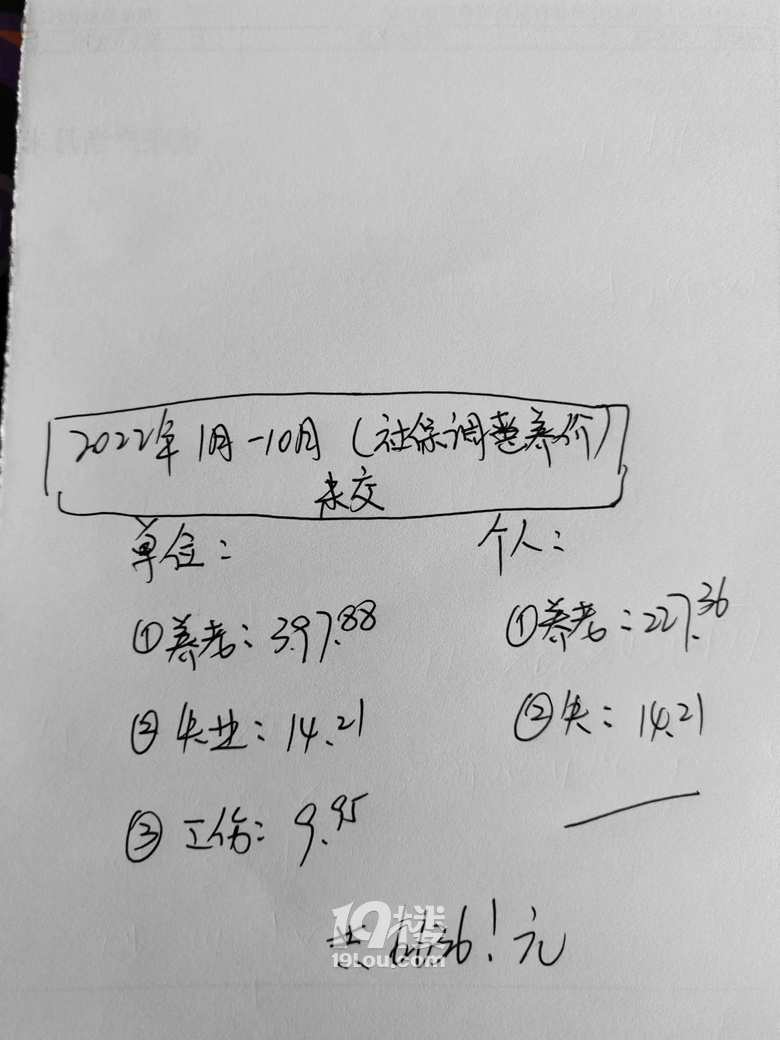 2022年1月-10月(社保调整差价)
未交
单位: 个人:
①养老:397.88 ①养老:227.36
②失业:14.21 ②失:14.21
③工伤:9.95
共 元
19楼
19lou.com